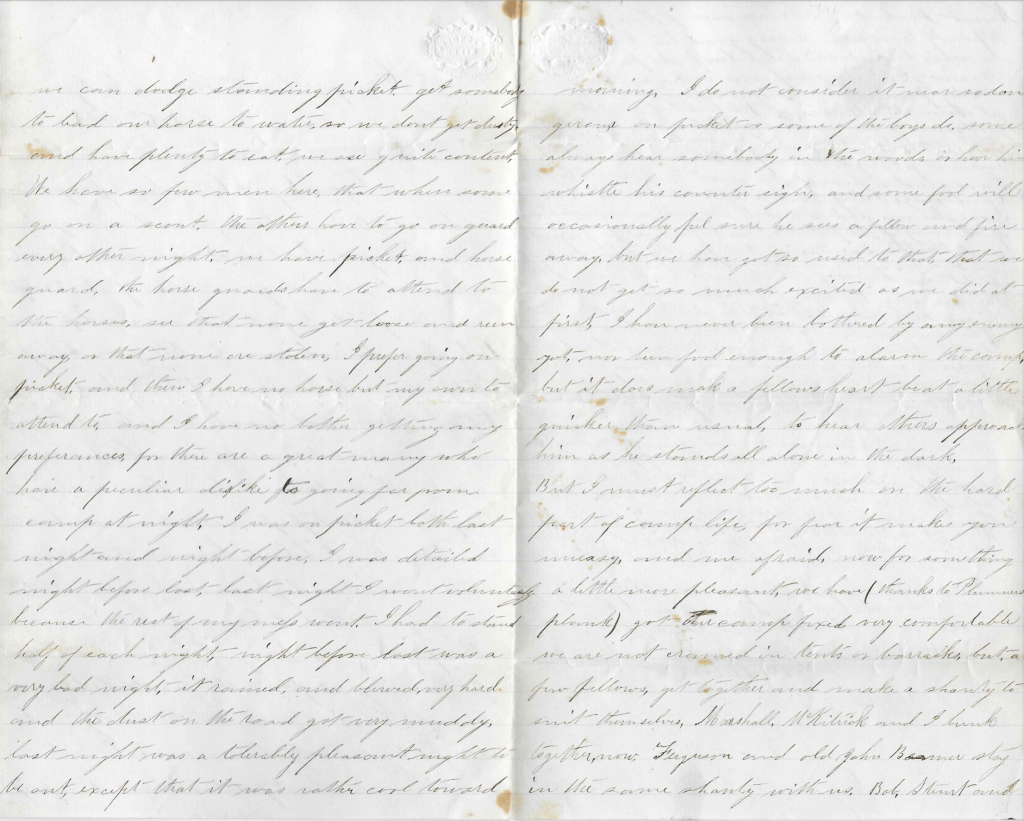 we can dodge standing picket, get somebody
to lead our horse to water, so we dont get dusty,
and have plenty to eat, we are quite content.
We have so few men here, that when some
go on a scout, the others have to go on guard
every other night, we have picket, and horse
guard, the horse guards have to attend to
the horses, see that none get loose and run
away, or that none are stolen, I prefer going on
picket, and then I have no horse but my own to
attend to, and I have no bother getting my
preferances, for there are a great many who
have a peculiar dislike to going far from
camp at night, I was on picket both last
night and night before, I was detailed
night before last, last night I went voluntarily
because the rest of my mess went. I had to stand
half of each night, night before last was a
very bad night, it rained, and blowed, very hard
and the dust on the road got very muddy,
last night was a tolerably pleasant night to
be out, except that it was rather cool toward
morning, I do not consider it near so dan
gerous on picket as some of the boys do, some
always hear somebody in the woods or hear him
whistle his counter sign, and some fool will
occasionally feel sure he sees a fellow and fire
away, but we have got so used to that, that we
do not get so much excited as we did at
first, I have never been bothered by any enemy
yet, nor been fool enough to alarm the camp,
but it does make a fellows heart beat a little
quicker than usual, to hear others approach
him as he stands all alone in the dark,
But I must reflect too much on the hard
part of camp life, for fear it makes you
uneasy, and me afraid, now for something
a little more pleasant, we have (thanks to Plummers
plank) got our camp fixed very comfortable
we are not cramed in tents or barracks, but, a
few fellows, get together and make a shanty to
suit themselves, Marshall, McKitrick and I bunk
together, now, Ferguson and old John Beamer stay
in the same shanty with us. Bob, Stewart and